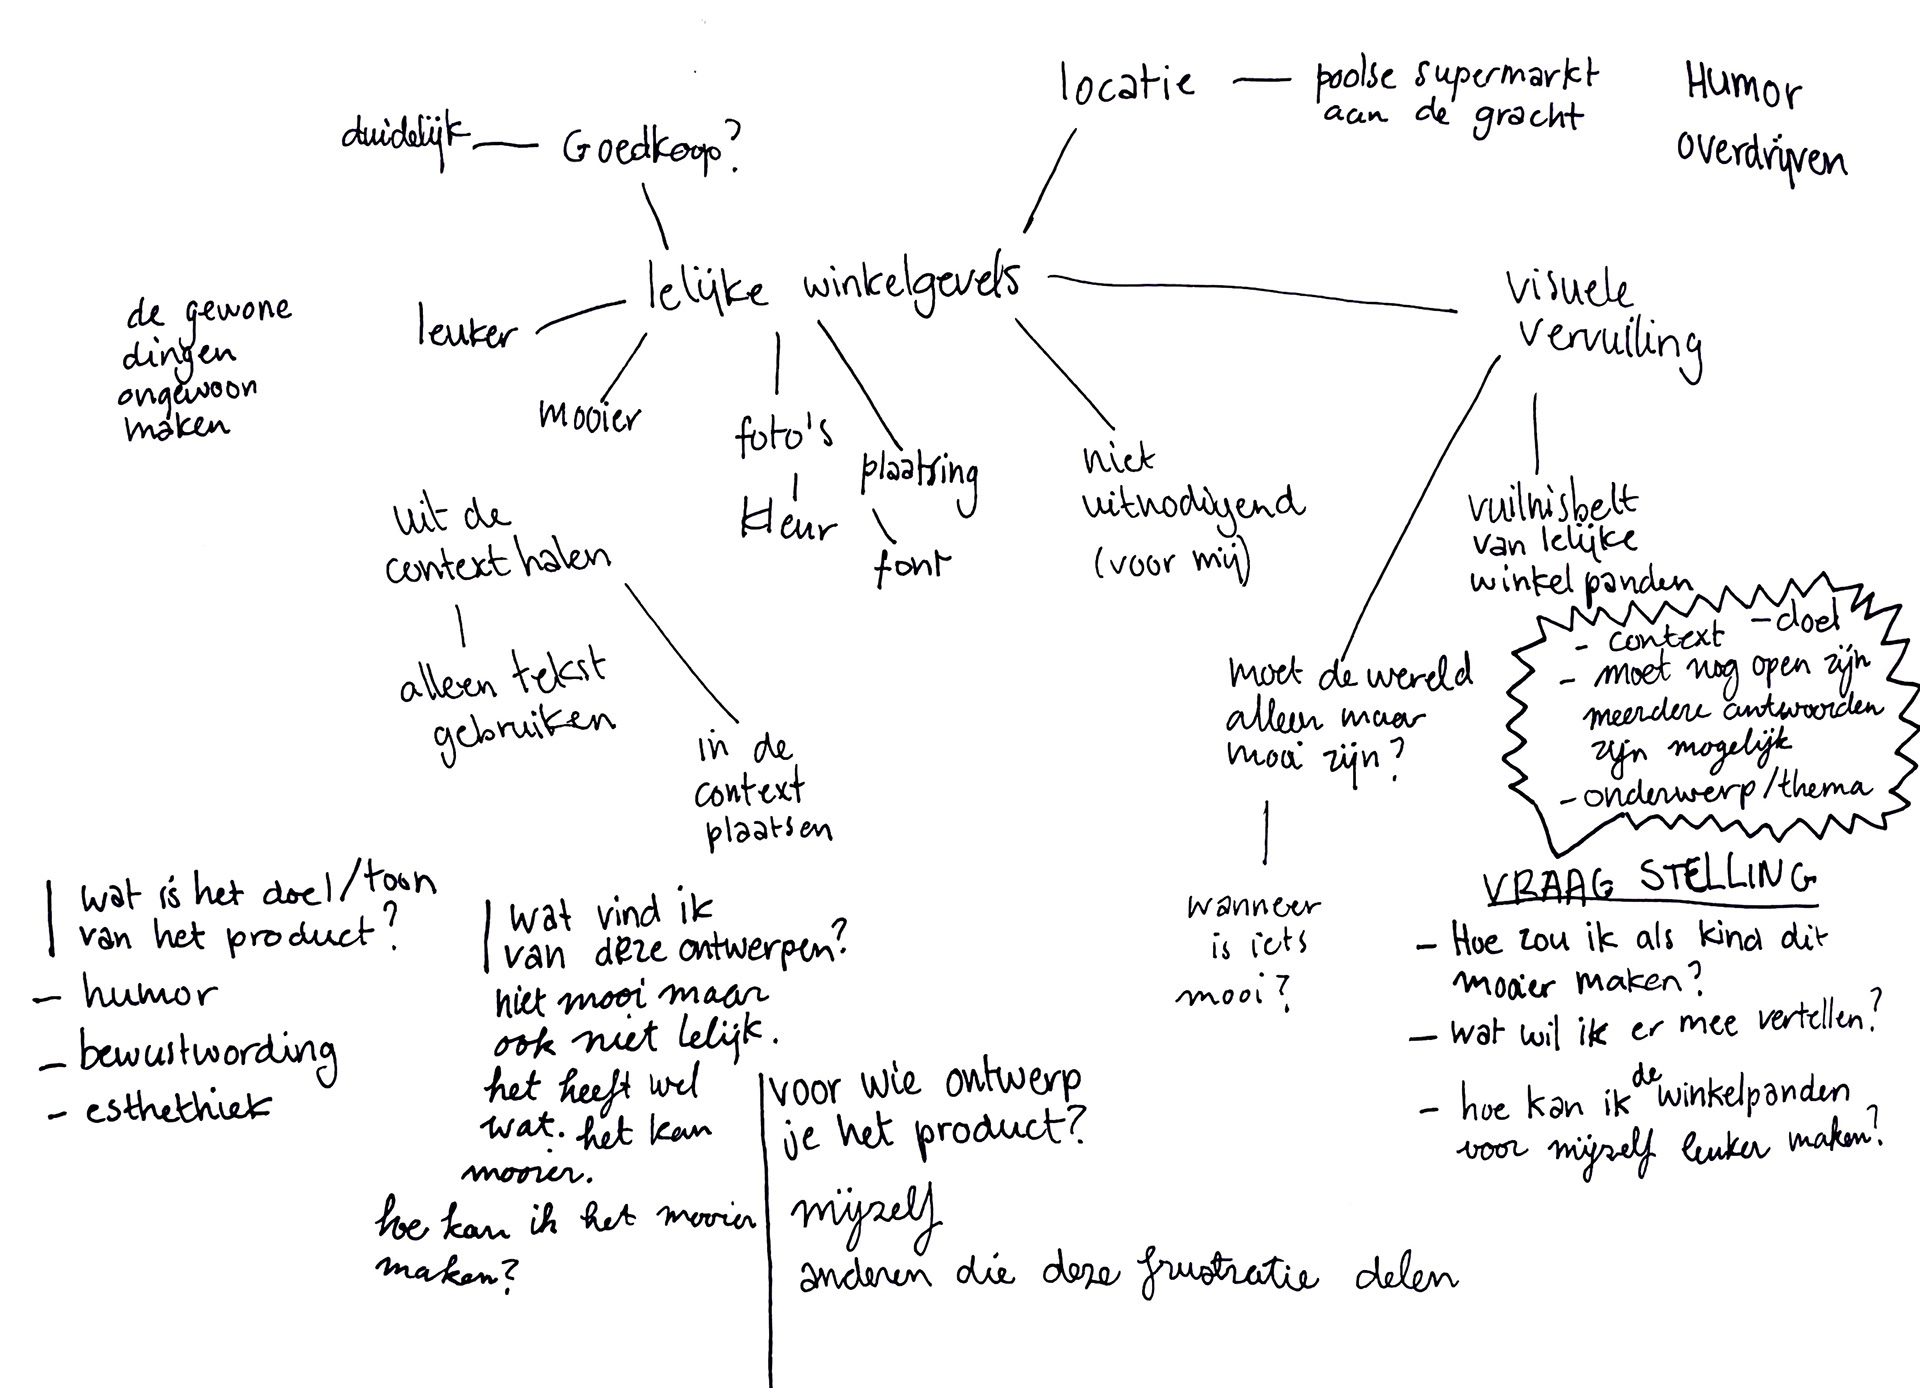 locatie — poolse supermarkt
aan de gracht
Humor
overdrijven
duidelijk — Goedkoop?
lelijke winkelgevels
visuele
vervuiling
de gewone
dingen
ongewoon
maken
leuker
mooier
foto's
kleur
plaatsing
font
niet
uitnodigend
(voor mij)
vuilnisbelt
van lelijke
winkelpanden
uit de
context halen
alleen tekst
gebruiken
in de
context
plaatsen
moet de wereld
alleen maar
mooi zijn?
wanneer
is iets
mooi?
- context - doel
- moet nog open zijn
meerdere antwoorden
zijn mogelijk
- onderwerp/thema
VRAAG STELLING
- Hoe zou ik als kind dit
mooier maken?
- wat wil ik er mee vertellen?
- hoe kan ik de winkelpanden
voor mijzelf leuker maken?
wat is het doel/toon
van het product?
- humor
- bewustwording
- esthethiek
wat vind ik
van deze ontwerpen?
niet mooi maar
ook niet lelijk.
het heeft wel
wat. het kan
mooier.
hoe kan ik het mooier
maken?
voor wie ontwerp
je het product?
mijzelf
anderen die deze frustratie delen